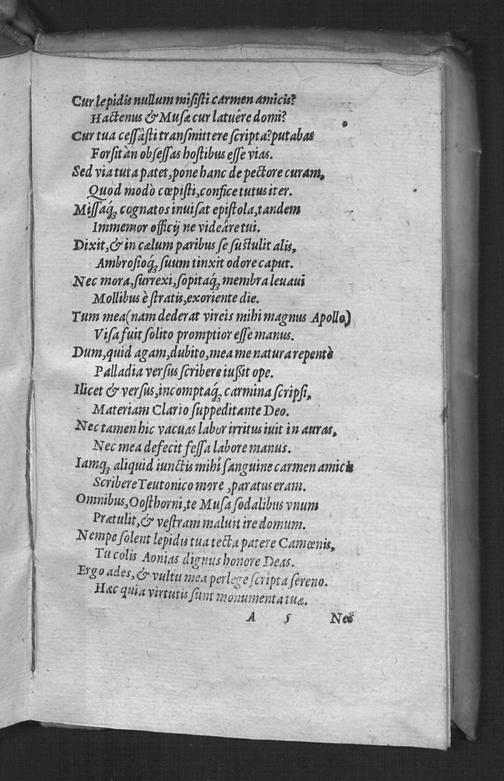 Cur lepidis nullum misisti carmen amicis?
Hactenus & Musæ cur latuêre domi?
Cur tua cessâsti transmittere scripta? putabas
Forsitàn obsessas hostibus esse vias.
Sed via tuta patet, pone hanc de pectore curam,
Quòd modò cœpisti, confice tutus iter.
Missaq́; cognatos inuisat epistola, tandem
Immemor officij ne videâre tui.
Dixit, & in cælum paribus se sustulit alis,
Ambrosioq́; suum tinxit odore caput.
Nec mora, surrexi, sopitaq́; membra leuaui
Mollibus è stratis, exoriente die.
Tum mea (nam dederat vireis mihi magnus Apollo)
Visa fuit solito promptior esse manus.
Dum, quid agam, dubito, mea me natura repentè
Palladia versus scribere iussit ope.
Ilicet & versus, incomptaq́; carmina scripsi,
Materiam Clario suppeditante Deo.
Nec tamen hic vacuas labor irritus iuit in auras,
Nec mea defecit fessa labore manus.
Iamq́; aliquid iunctis mihi sanguine carmen amicis
Scribere Teutonico more, paratus eram.
Omnibus, Oosthorni, te Musa sodalibus vnum
Prætulit, & vestram maluit ire domum.
Nempe solent lepidis tua tecta patere Camœnis,
Tu colis Aonias dignus honore Deas.
Ergo ades, & vultu mea perlege scripta sereno.
Hæc quia virtutis sunt monumenta tuæ.
A 5 Nec